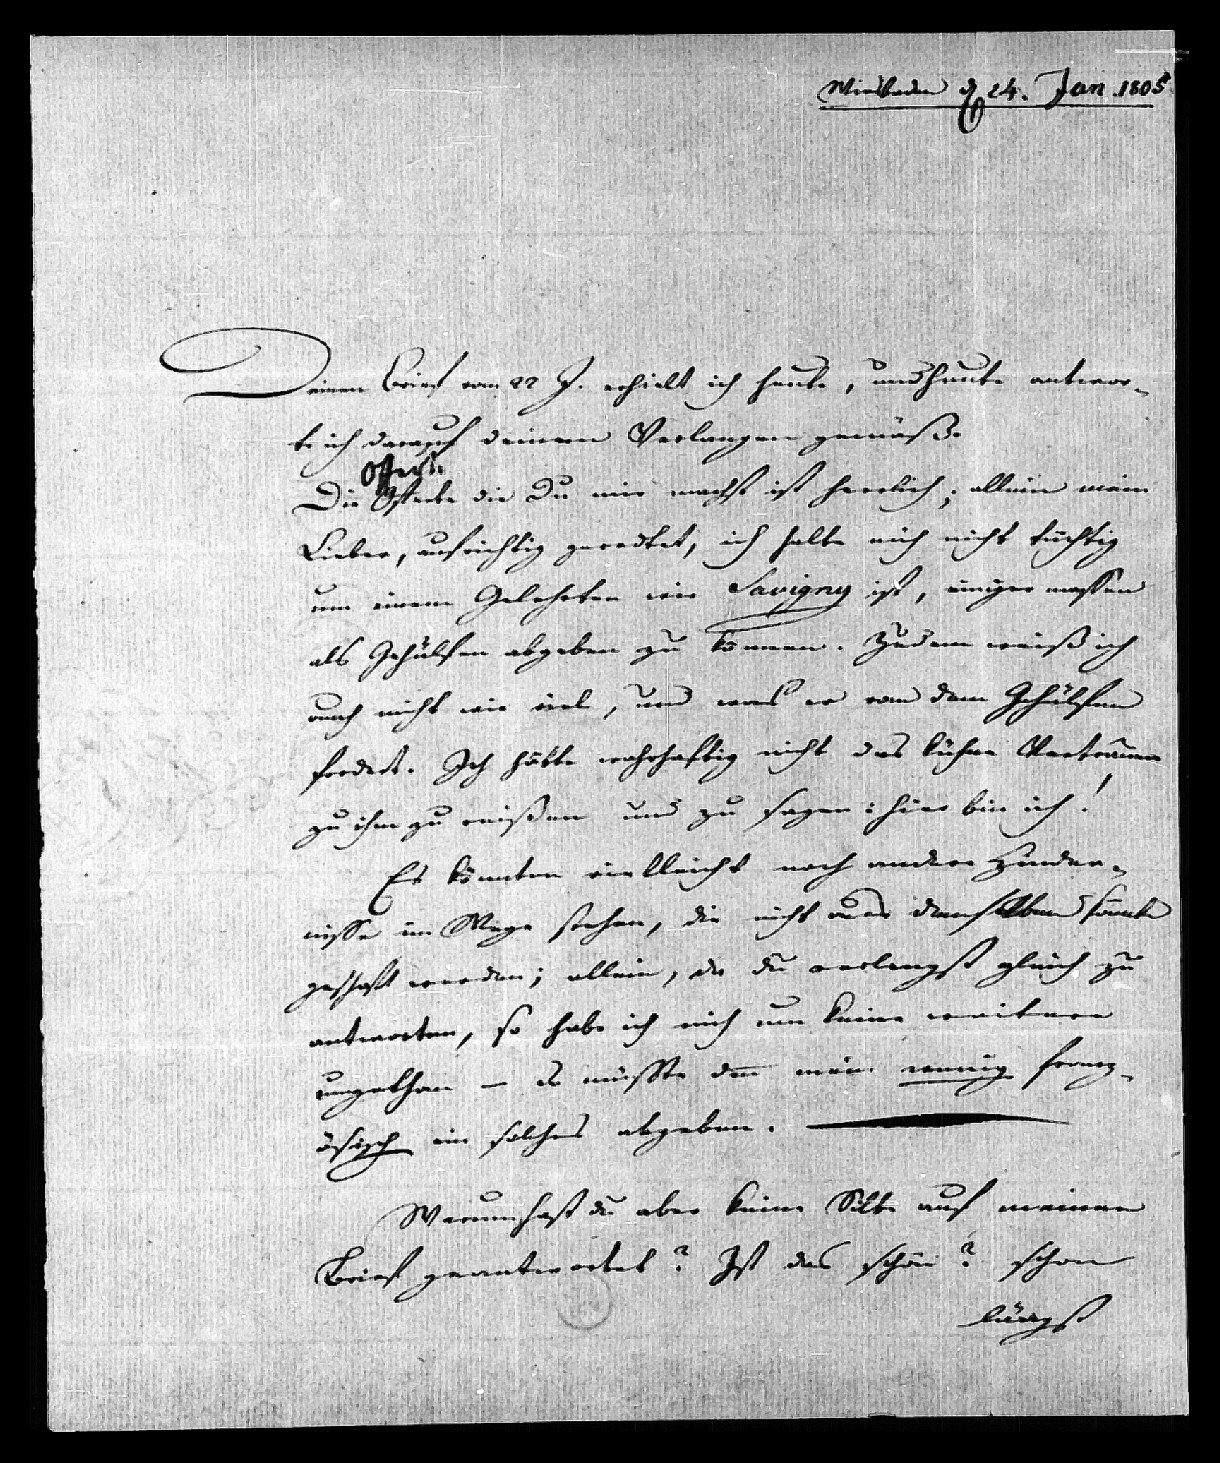 Wiesbaden d 24. Jan. 1805
Deinen Brief vom 22 J. erhielt ich heute, und heute antwor-
te ich darauf deinem Verlangen gemäß.
Offerte
Die Offerte die Du mir machst ist herrlich; allein mein
Lieber, aufrichtig geredtet, ich halte mich nicht tüchtig
um einem Gelehrten wie Savigny ist, einiger massen
als Gehülfen abgeben zu können. Zudem weiß ich
auch nicht wie viel, und was er von dem Gehülfen
fordert. Ich hätte wahrhaftig nicht das kühne Vertrauen
zu ihm zu reißen und zu sagen: hier bin ich!
Es könnten vielleicht noch andere Hinder-
nisse im Wege stehen, die nicht aus demselben könnte
geschaft werden; allein, da du verlangst gleich zu
antworten, so habe ich mich um keine weitere
umgethan – es müsste den mein wenig franz-
ösisch ein solches abgeben.
Warum hast du aber keine Silbe auf meinen
Brief geantwortet? Ist das schön? schon
längst